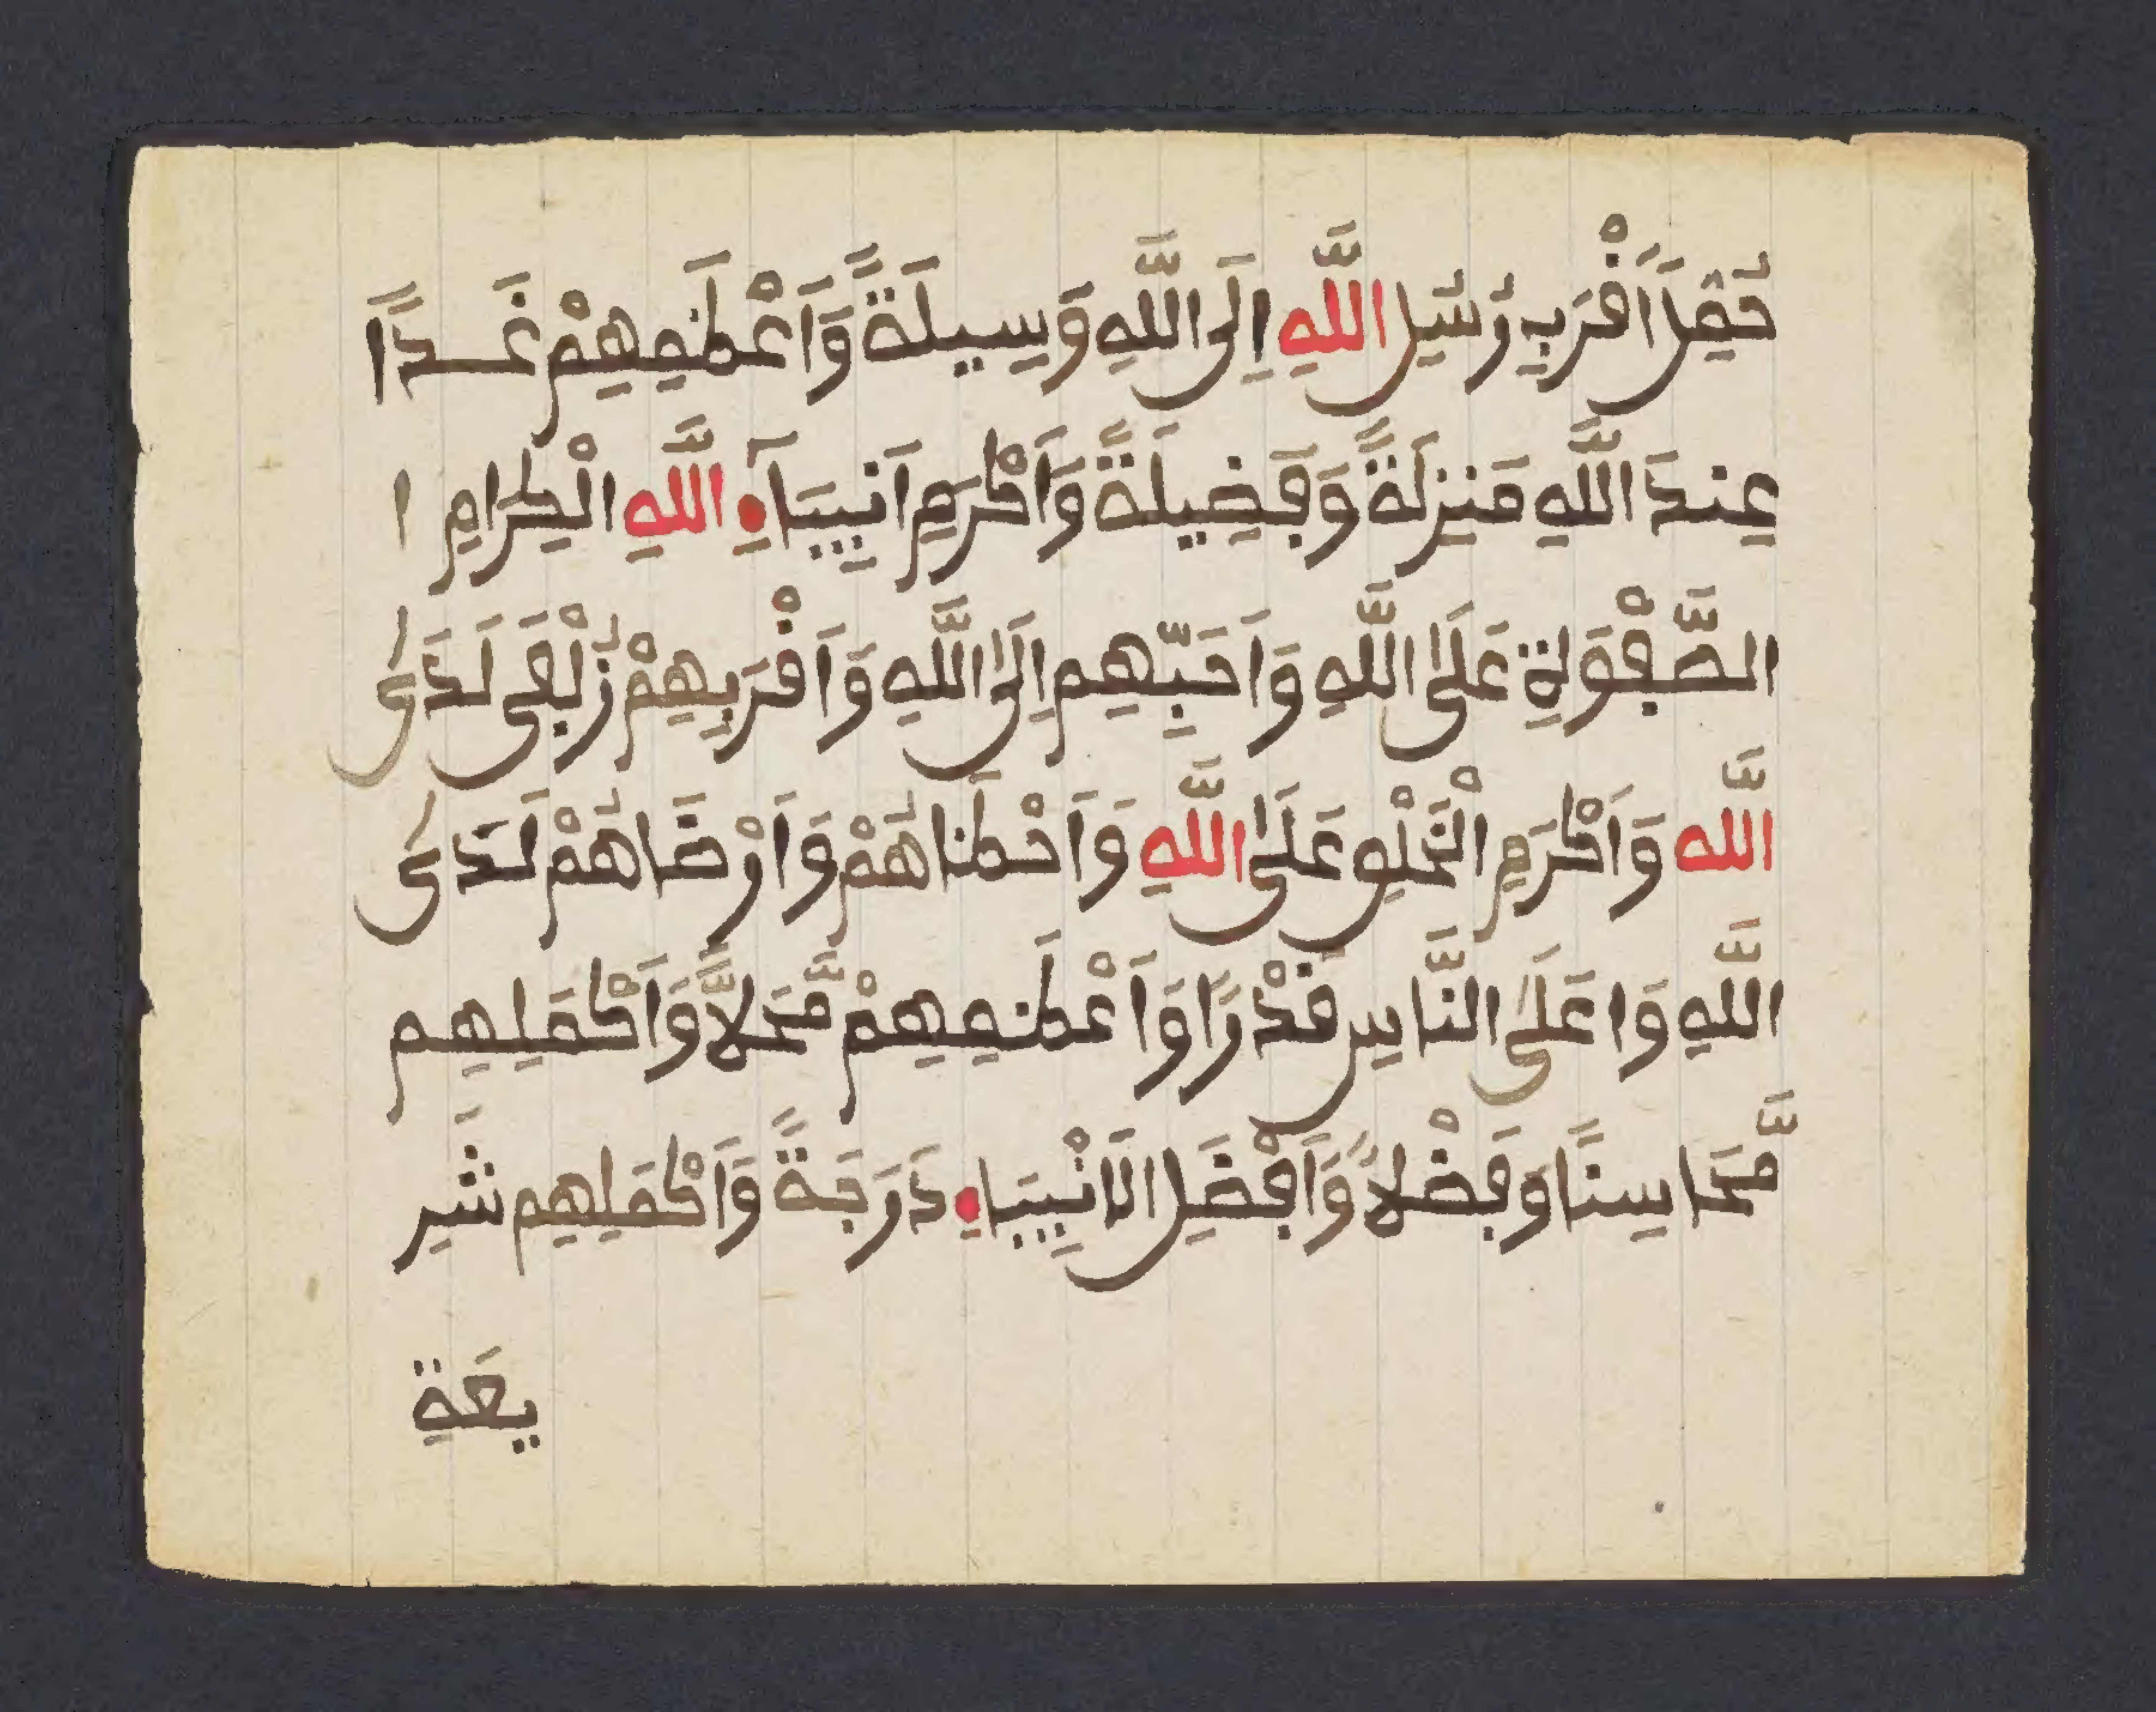 اَقْرَبِ رُسُلِ اللَّهِ اِلَى اللَّهِ وَسِيلَةً وَاَعْظَمِهِمْ غَدًا
عِندَ اللَّهِ مَنزِلَةً وَفَضِيلَةً وَاَكْرَمِ اَنبِيَآءِ اللَّهِ الْكِرَامِ ا
الصَّفْوَةِ عَلَى اللَّهِ وَاَحَبِّهِم اِلَى اللَّهِ وَاَقْرَبِهِمْ زُلْفَى لَدَى
اللَّه وَاَكْرَمِ الْخَلْقِ عَلَى اللَّهِ وَاَحْظَاهُمْ وَاَرْضَاهُمْ لَدَى
اللَّهِ وَاعَلَى النَّاسِ قَدْرًا وَاَعْظَمِهِمْ مَّحَلاًّ وَاَكْمَلِهِم
مَّحَاسِنًا وَفَضْلاً وَاَفْضَلِ الَانْبِيَاءِ دَرَجَةً وَاَكْمَلِهِم شَرِ
يعَةً